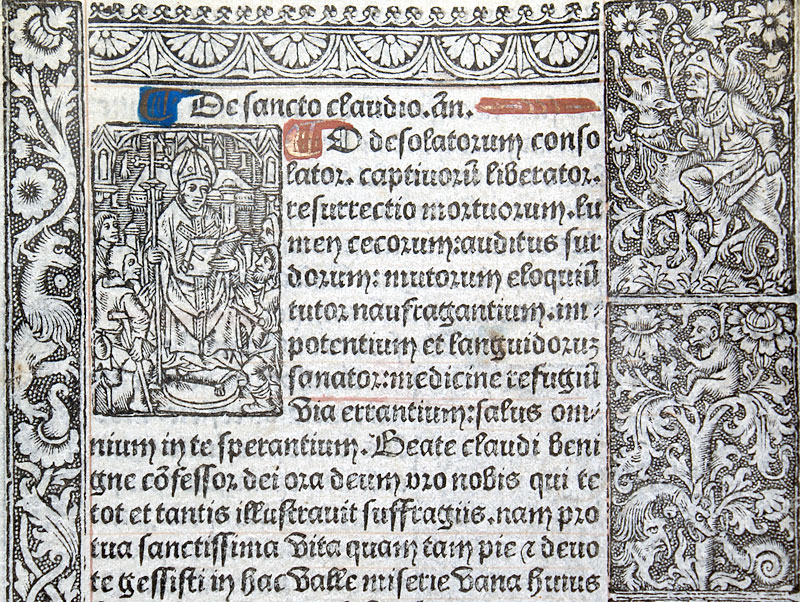 De sancto claudio. añ.
O desolatorum conso
lator. captiuorū liberator.
resurrectio mortuorum. lu
men cecorum: auditus sur
dorum: mutorum eloquiū
tutor naufragantium. im-
potentium et languidoruꝫ
sanator: medicine refugiū
via errantium: salus om-
nium in te sperantium. Beate claudi beni
gne cōfessor dei ora deum pro nobis qui te
tot et tantis illustrauit suffragiis. nam pro
tua sanctissima vita quam tam pie ⁊ deuo
te gessisti in hac valle miserie vana huius